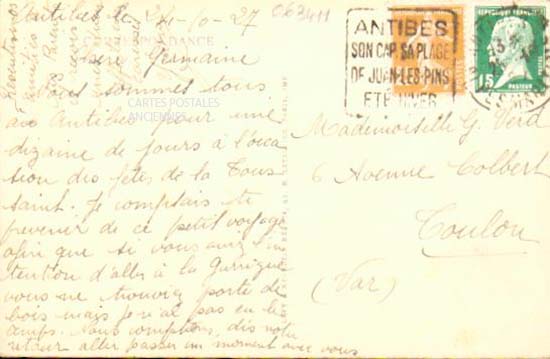 Antibes le 24-10-27
063411
CORRESPONDANCE
Chère Germaine
Nous sommes tous
CARTES POSTALES
ANCIENNES
au Antibes pour une
dizaine de jours à l'occa
sion des fêtes de la Tous
saint. Je comptais te
prevenir de ce petit voyage
afin que si vous aviez l'in
tention d'aller à la Garrigue
vous ne trouviez porte de
bois mais je n'ai pas eu le
temps. Nous comptons, dis notre
retour aller passer un moment avec vous
ANTIBES
SON CAP, SA PLAGE
DE JUAN-LES-PINS
ETE HIVER
REPUBLIQUE FRANÇAISE
15
PASTEUR
POSTES
Mademoiselle G. Verd
6 Avenue Colbert
Toulon
(Var)